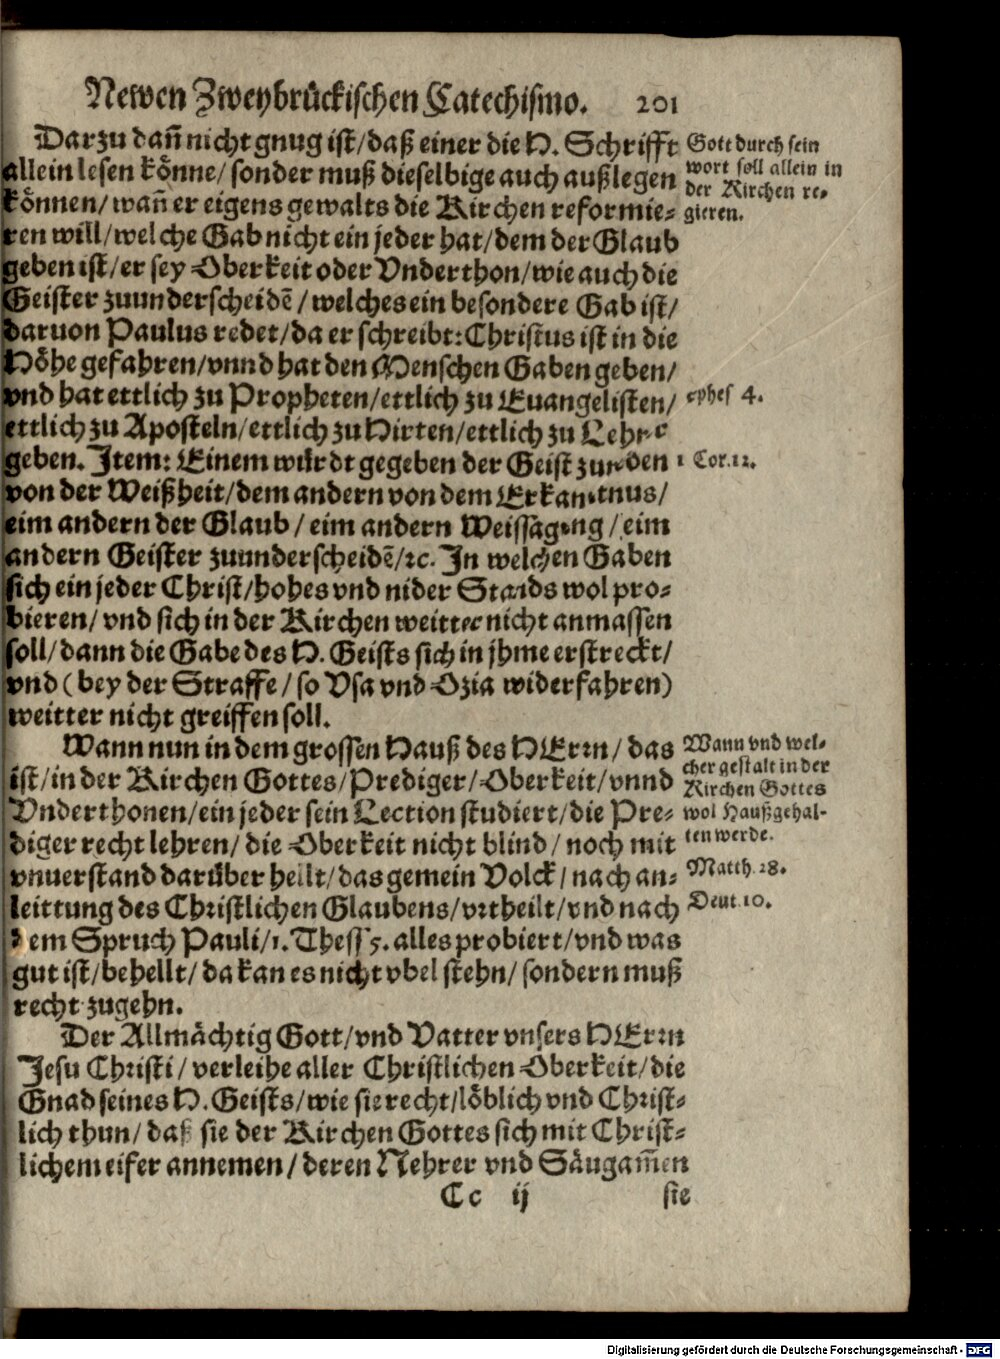 Newen Zweybrückischen Catechismo. 201
Darzu dañ nicht gnug ist/daß einer die H. Schrifft
allein lesen könne/ sonder muß dieselbige auch außlegen
können/ wañ er eigens gewalts die Kirchen reformie-
ren will/welche Gab nicht ein jeder hat/dem der Glaub
geben ist/er sey Oberkeit oder Vnderthon/wie auch die
Geister zuunderscheidē/welches ein besondere Gab ist/
daruon Paulus redet/da er schreibt: Christus ist in die
Höhe gefahren/vnnd hat den Menschen Gaben geben/
vnd hat ettlich zu Propheten/ettlich zu Euangelisten/
ettlich zu Aposteln/ettlich zu Hirten/ettlich zu Lehrer
geben. Item: Einem würdt gegeben der Geist zureden
von der Weißheit/dem andern von dem Erkantnus/
eim andern der Glaub/ eim andern Weissagung/ eim
andern Geister zuunderscheidē/ꝛc. In welchen Gaben
sich ein jeder Christ/hohes vnd nider Stands wol pro-
bieren/ vnd sich in der Kirchen weitter nicht anmassen
soll/dann die Gabe des H. Geists sich in jhme erstreckt/
vnd (bey der Straffe/ so Vsa vnd Ozia widerfahren)
weitter nicht greiffen soll.
Wann nun in dem grossen Hauß des HErrn/ das
ist/in der Kirchen Gottes/Prediger/Oberkeit/vnnd
Vnderthonen/ein jeder sein Lection studiert/die Pre-
diger recht lehren/ die Oberkeit nicht blind/ noch mit
vnuerstand darüber heilt/das gemein Volck/ nach an-
leittung des Christlichen Glaubens/vrtheilt/vnd nach
dem Spruch Pauli/1. Thess 5. alles probiert/vnd was
gut ist/behellt/da kan es nicht vbel stehn/ sondern muß
recht zugehn.
Der Allmächtig Gott/vnd Vatter vnsers HErrn
Jesu Christi/ verleihe aller Christlichen Oberkeit/die
Gnad seines H. Geists/wie sie recht/löblich vnd Christ-
lich thun/ daß sie der Kirchen Gottes sich mit Christ-
lichem eifer annemen/ deren Nehrer vnd Säugam̃en
Cc ij sie
Gott durch sein
wort soll allein in
der Kirchen re-
gieren.
Ephes 4.
1 Cor. 12.
Wann vnd wel-
cher gestalt in der
Kirchen Gottes
wol Haußgehal-
ten werde.
Matth. 28.
Deut. 10.
Digitalisierung gefördert durch die Deutsche Forschungsgemeinschaft - DFG